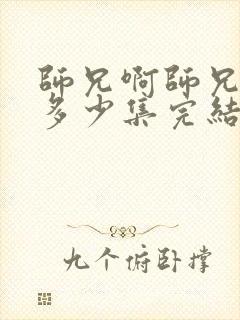 師兄啊師兄
多少集完結
九个俯卧撑